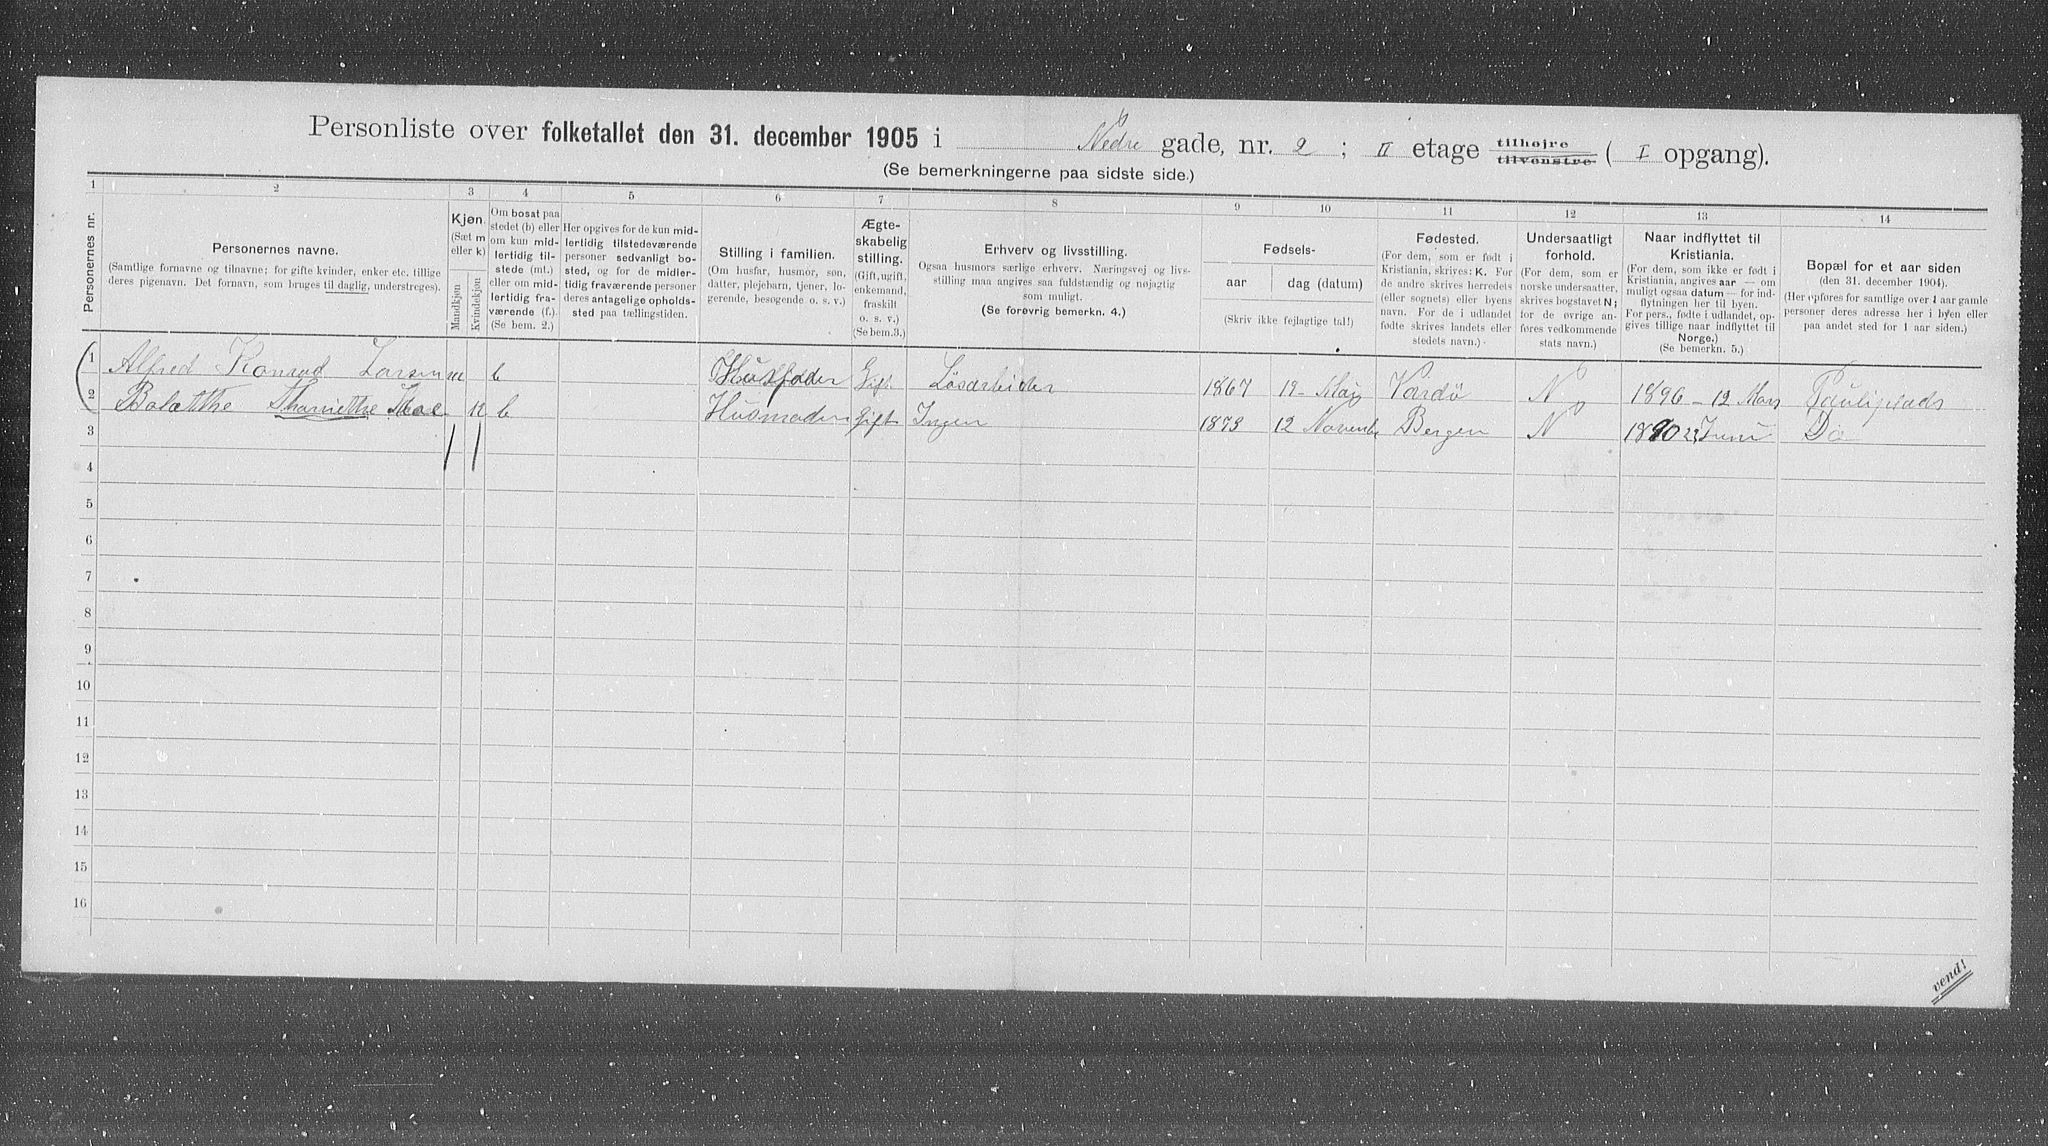 Personliste over folketallet den 31. december 1905 i Nedre gade, nr. 2 ; II etage tilhøjre tilvenstre ( I opgang).
(Se bemerkningerne paa sidste side.)
1 2 3 4 5 6 7 8 9 10 11 12 13 14
Personernes nr.
Personernes navne.
(Samtlige fornavne og tilnavne; for gifte kvinder, enker etc. tillige
deres pigenavn. Det fornavn, som bruges til daglig, understreges).
Kjøn.
(Sæt m
eller k)
Mandkjøn
Kvindekjøn
Om bosat paa
stedet (b) eller
om kun mid-
lertidig til-
stede (mt.)
eller om mid-
lertidig fra-
værende (f.)
(Se bem. 2.)
Her opgives for de kun mid-
lertidig tilstedeværende
personer sedvanligt bo-
sted, og for de midler-
tidig fraværende personer
deres antagelige opholds-
sted paa tællingstiden.
Stilling i familien.
(Om husfar, husmor, søn,
datter, plejebarn, tjener, lo-
gerende, besøgende o. s. v.)
Ægte-
skabelig
stilling.
(Gift, ugift,
enkemand,
fraskilt
o. s. v.)
(Se bem.3.)
Erhverv og livsstilling.
Ogsaa husmors særlige erhverv. Næringsvej og livs-
stilling maa angives saa fuldstændig og nøjagtig
som muligt.
(Se forøvrig bemerkn. 4.)
Fødsels-
aar dag (datum)
(Skriv ikke fejlagtige tal!)
Fødested.
(For dem, som er født i
Kristiania, skrives: K. For
de andre skrives herredets
(eller sognets) eller byens
navn. For de i udlandet
fødte skrives landets eller
stedets navn.)
Undersaatligt
forhold.
(For dem, som er
norske undersaatter,
skrives bogstavet N;
for de øvrige an-
føres vedkommende
stats navn.)
Naar indflyttet til
Kristiania.
(For dem, som ikke er født i
Kristiania, angives aar — om
muligt ogsaa datum — for ind-
flytningen her til byen.
For pers., fødte i udlandet, op-
gives tillige naar indflyttet til
Norge.)
(Se bemerkn. 5.)
Bopæl for et aar siden
(den 31. december 1904).
(Her opføres for samtlige over 1 aar gamle
personer deres adresse her i byen eller
paa andet sted for 1 aar siden.)
1 Alfred Konrad Larsen m b Husfader Gift Løsarbeider 1867 12 Maj Vardø N 1896 - 12 Mars Pauliplads
2 b Husmoder Gift Ingen 1873 12 Novemb Bergen N 1890 Juni Do
3
4
5
6
7
8
9
10
11
12
13
14
15
16
vend!